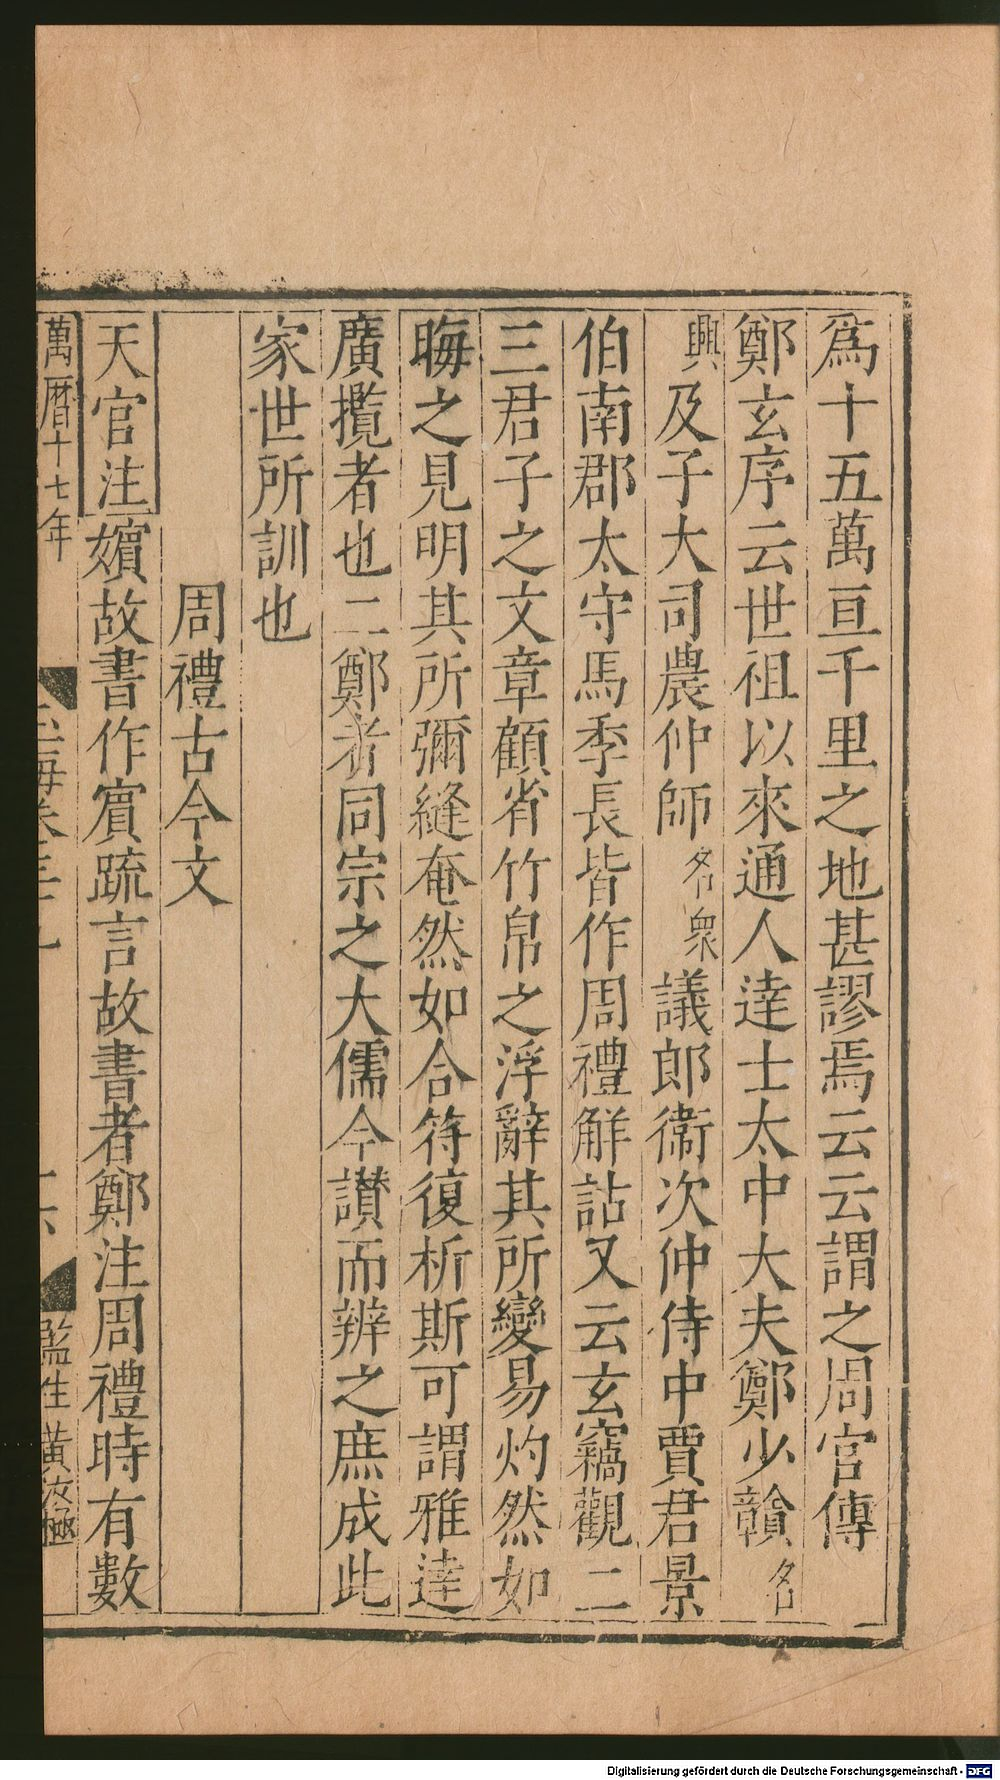 爲十五萬亘千里之地甚謬焉云云謂之周官傳
鄭玄序云世祖以來通人達士太中大夫鄭少贛名
興及子大司農仲師名衆議郎衞次仲侍中賈君景
伯南郡太守馬季長皆作周禮解詁又云玄竊觀二
三君子之文章顧省竹帛之浮辭其所變易灼然如
晦之見明其所彌縫奄然如合符復析斯可謂雅達
廣攬者也二鄭者同宗之大儒今讃而辨之庶成此
家世所訓也
周禮古今文
天官注嬪故書作賓疏言故書者鄭注周禮時有數
萬曆十七年
監生黃汝極
Digitalisierung gefördert durch die Deutsche Forschungsgemeinschaft - DFG